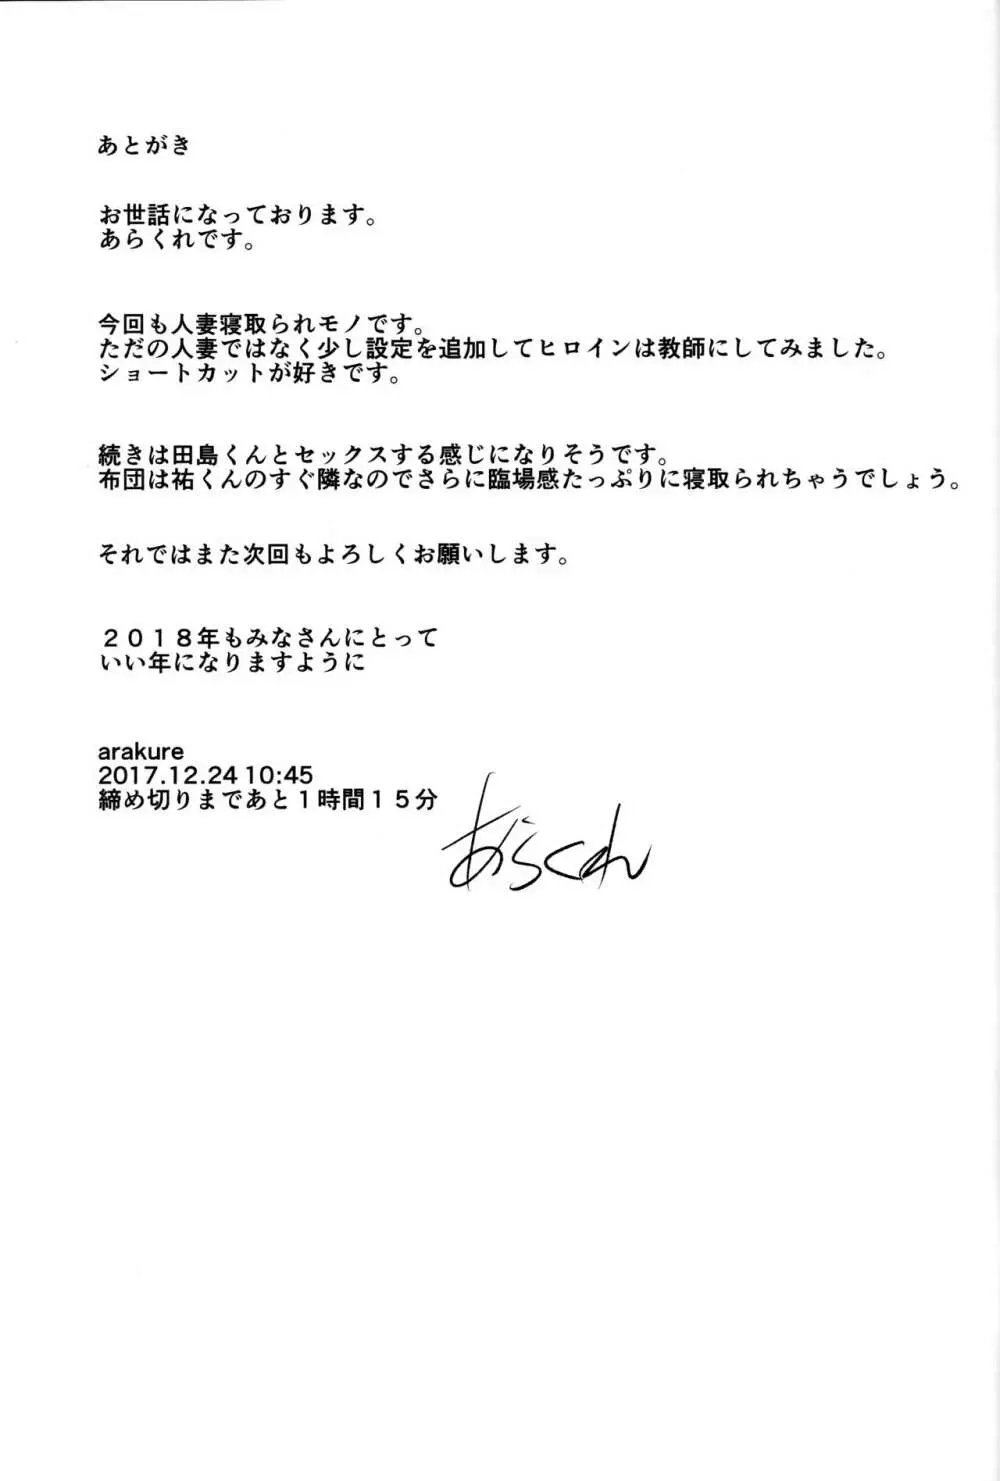 あとがき
お世話になっております。
あらくれです。
今回も人妻寝取られモノです。
ただの人妻ではなく少し設定を追加してヒロインは教師にしてみました。
ショートカットが好きです。
続きは田島くんとセックスする感じになりそうです。
布団は祐くんのすぐ隣なのでさらに臨場感たっぷりに寝取られちゃうでしょう。
それではまた次回もよろしくお願いします。
２０１８年もみなさんにとって
いい年になりますように
arakure
2017.12.24 10:45
締め切りまであと１時間１５分
あらくれ